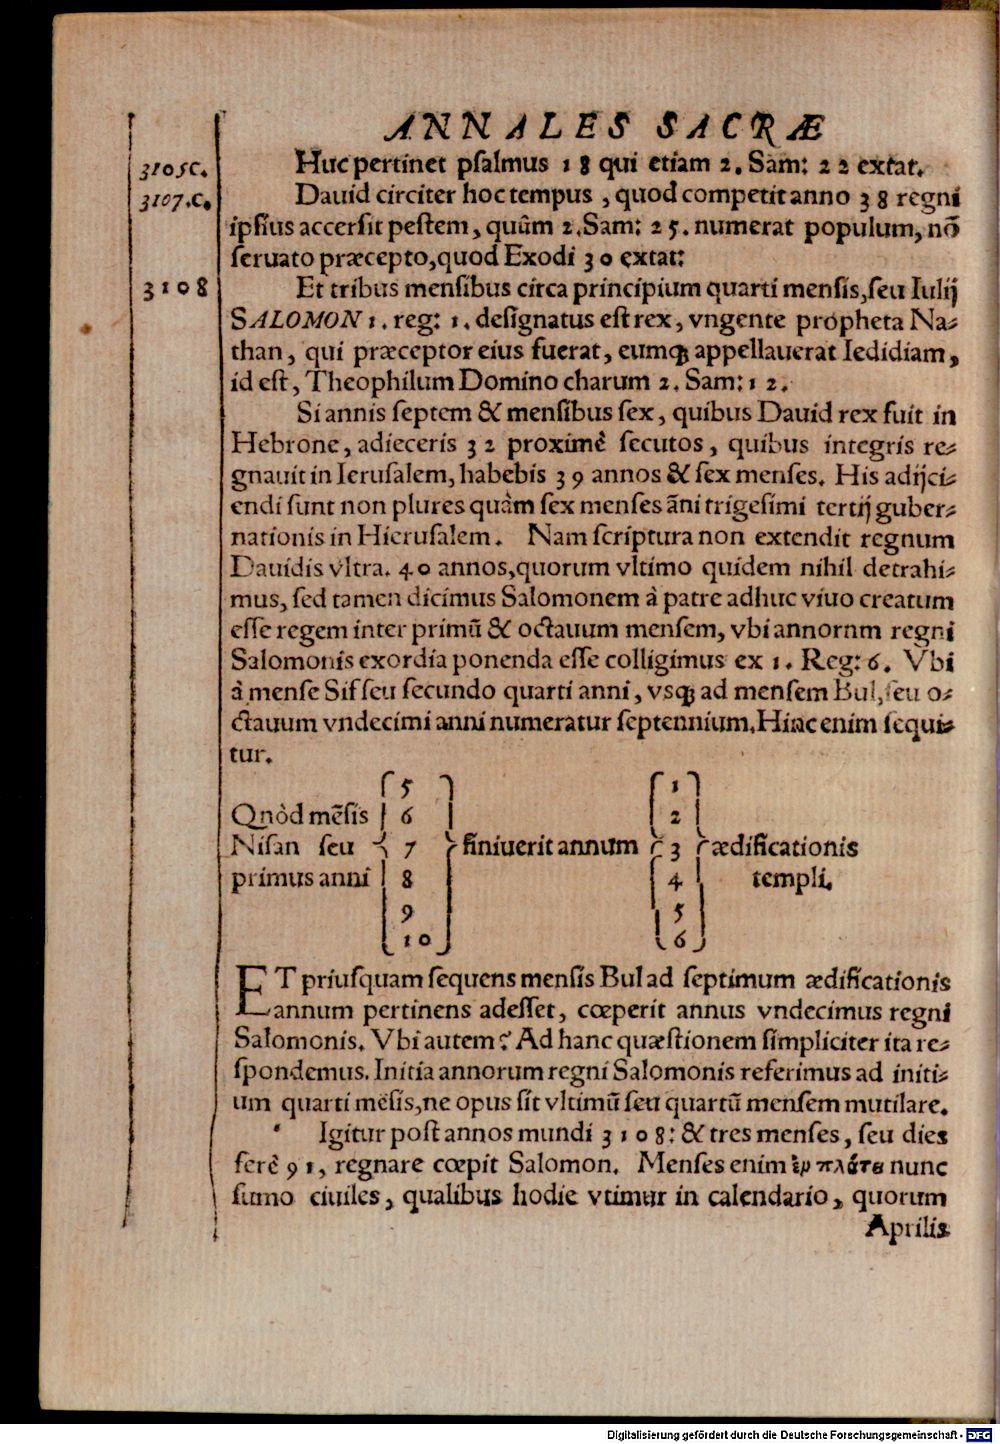 ANNALES SACRÆ
3105C. Huc pertinet psalmus 18 qui etiam 2. Sam: 22 extat.
3107.C. Dauid circiter hoc tempus, quod competit anno 38 regni
ipsius accersit pestem, quũm 2.Sam: 25. numerat populum, nõ
seruato præcepto, quod Exodi 30 extat:
3108 Et tribus mensibus circa principium quarti mensis, seu Iulij
SALOMON 1. reg: 1. designatus est rex, vngente propheta Na⸗
than, qui præceptor eius fuerat, eumq́ appellauerat Iedidiam,
id est, Theophilum Domino charum 2. Sam: 12.
Si annis septem & mensibus sex, quibus Dauid rex fuit in
Hebrone, adieceris 32 proximè secutos, quibus integris re⸗
gnauit in Ierusalem, habebis 39 annos & sex menses. His adijci⸗
endi sunt non plures quàm sex menses ãni trigesimi tertij guber⸗
nationis in Hierusalem. Nam scriptura non extendit regnum
Dauidis vltra. 40 annos, quorum vltimo quidem nihil detrahi⸗
mus, sed tamen dicimus Salomonem à patre adhuc viuo creatum
esse regem inter primũ & octauum mensem, vbi annornm regni
Salomonis exordia ponenda esse colligimus ex 1. Reg: 6. Vbi
à mense Sif seu secundo quarti anni, vsq́ ad mensem Bul, seu o⸗
ctauum vndecimi anni numeratur septennium. Hinc enim sequi⸗
tur.
Quòd mẽsis
Nisan seu
primus anni
5
6
7
8
9
10
finiuerit annum
1
2
3
4
5
6
ædificationis
templi.
ET priusquam sequens mensis Bul ad septimum ædificationis
annum pertinens adesset, cœperit annus vndecimus regni
Salomonis. Vbi autem? Ad hanc quæstionem simpliciter ita re⸗
spondemus. Initia annorum regni Salomonis referimus ad initi⸗
um quarti mẽsis, ne opus sit vltimũ seu quartũ mensem mutilare.
Igitur post annos mundi 3108: & tres menses, seu dies
ferè 91, regnare cœpit Salomon. Menses enim ἐν πλάτει nunc
sumo ciuiles, qualibus hodie vtimur in calendario, quorum
Aprilis
Digitalisierung gefördert durch die Deutsche Forschungsgemeinschaft - DFG